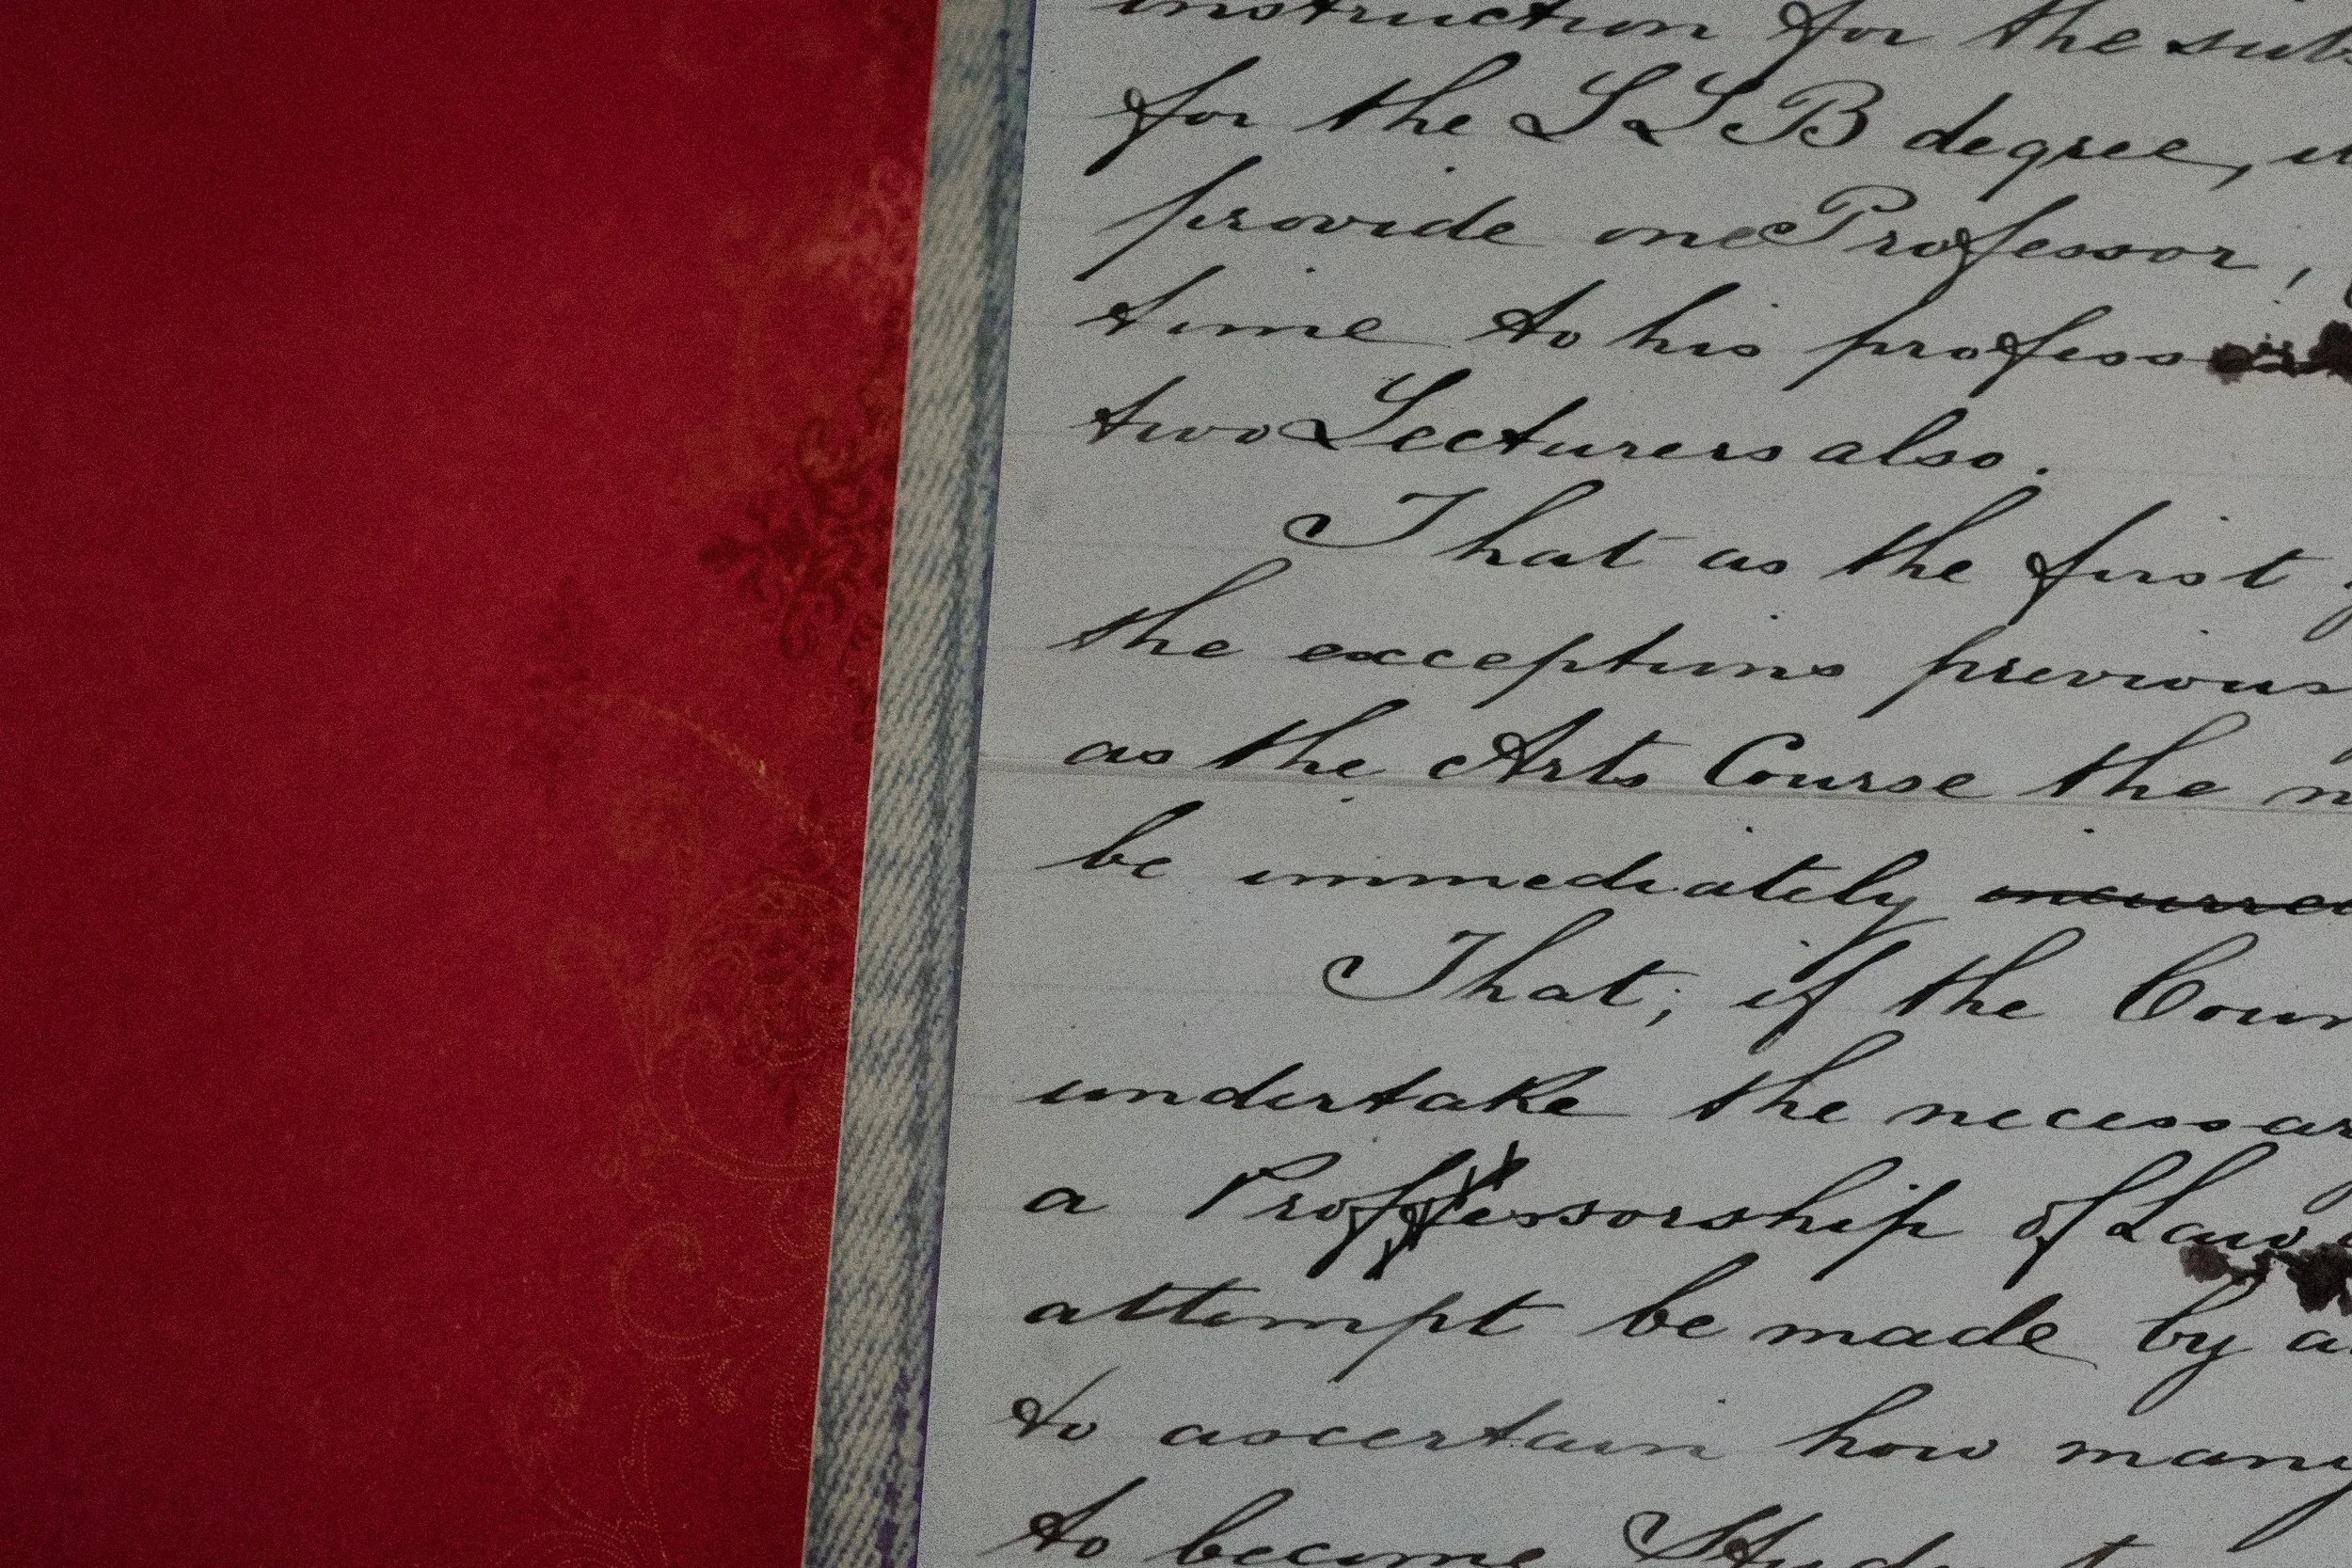 instruction for the
for the LLB degree,
provide one Professor,
time to his
two Lecturers also.
That as the first
the exceptions
as the Arts Course the
be immediately
That, if the
undertake the
a Proffessorship of Law
attempt be made by
to ascertain how many
to become